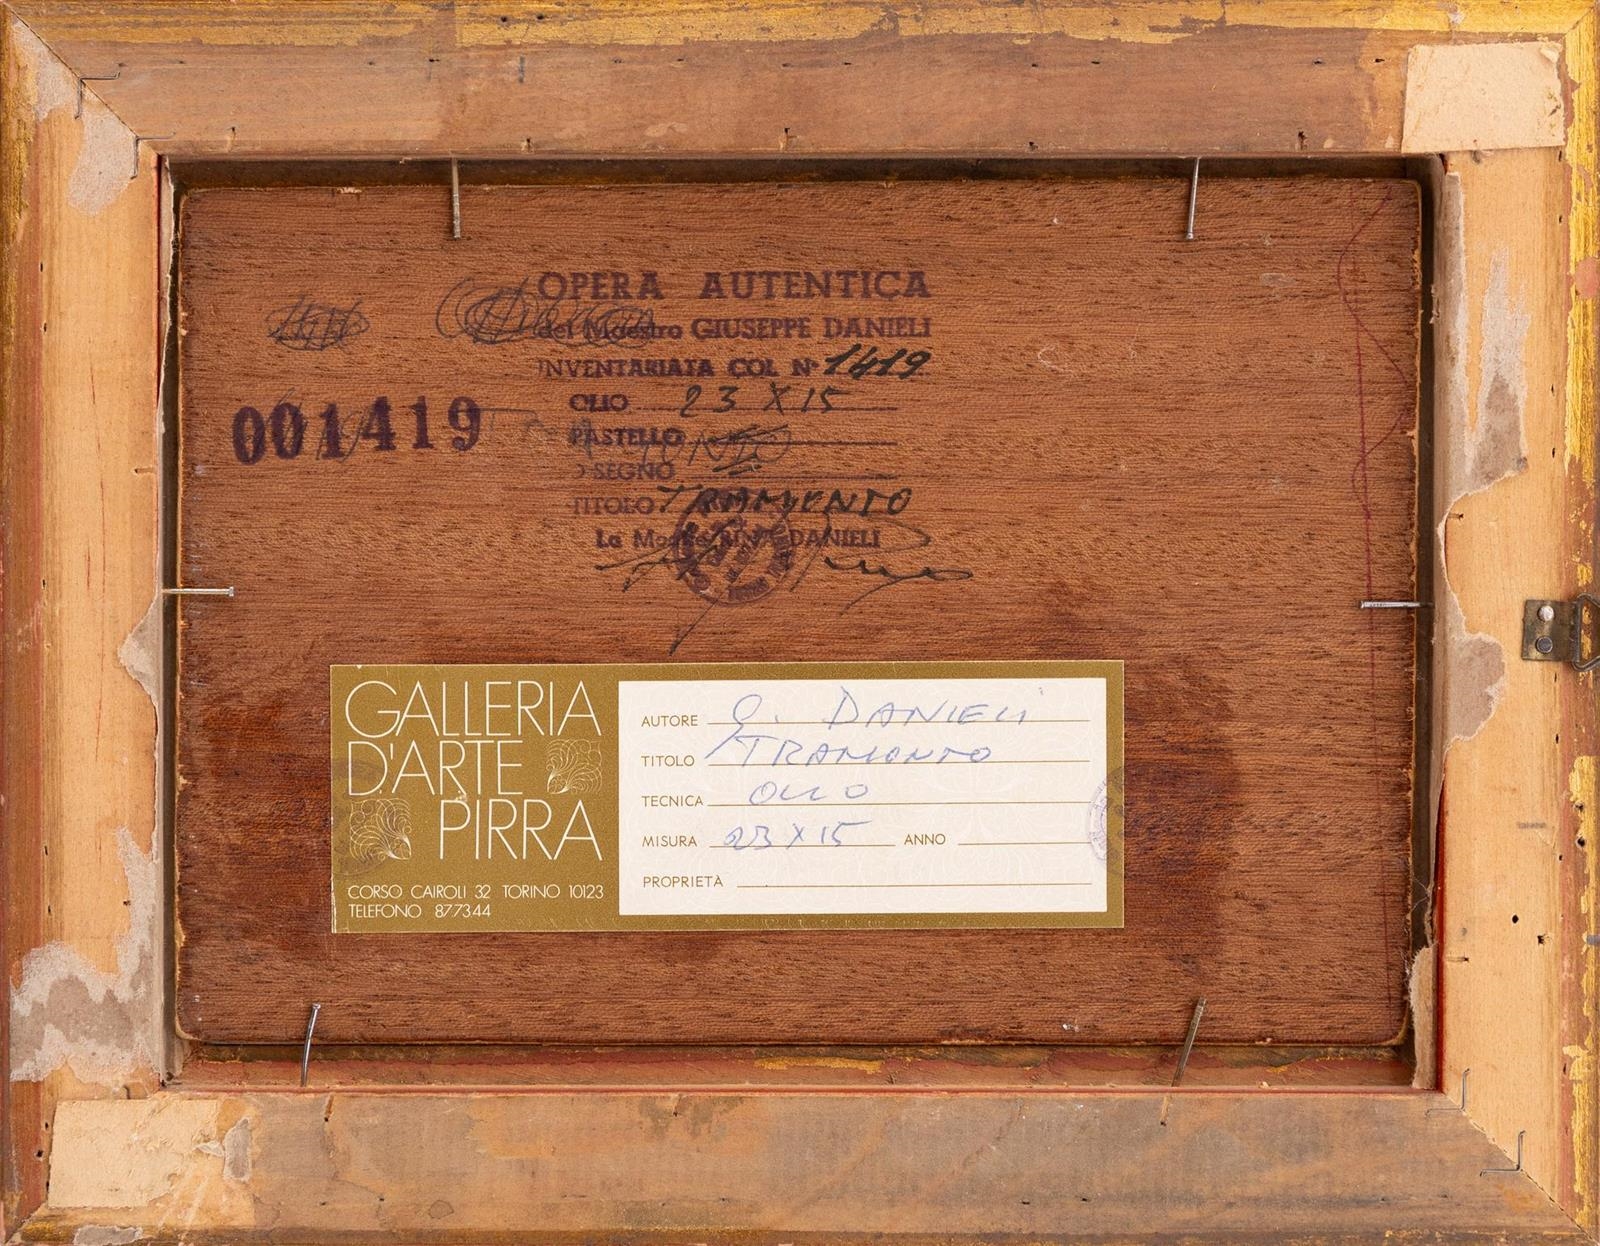 OPERA AUTENTICA
del Maestro GIUSEPPE DANIELI
INVENTARIATA COL N° 1419
001419
OLIO 23 X 15
PASTELLO
DISEGNO
TITOLO TRAMONTO
La Moglie DANIELI
GALLERIA
D'ARTE
PIRRA
CORSO CAIROLI 32 TORINO 10123
TELEFONO 877344
AUTORE G. DANIELI
TITOLO TRAMONTO
TECNICA OLIO
MISURA 23 X 15 ANNO
PROPRIETÀ